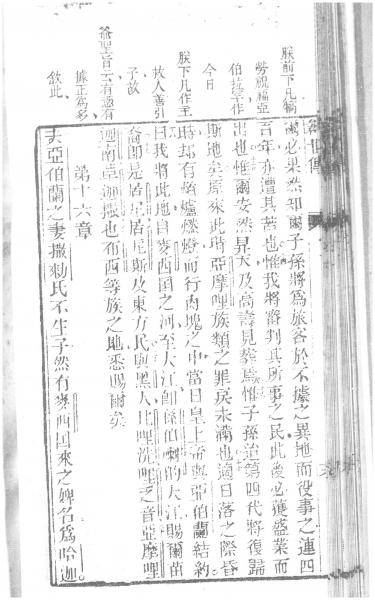 朕前下凡犒
勞祝福亞
伯作
今日
朕下凡作主
故人善引
子故
爺聖旨云有憑有
據正為多
敘此
爾必果然知爾子孫將為旅客於不據之異地而役事之連四
百年亦遭其苦也惟我將審判其所事之民此後必獲盛業而
出也惟爾安然昇天及高壽見葬焉惟子孫迨第四代將復歸
斯地矣原來此時亞摩哩族類之罪戾未滿也適日落之際昏
時却有煙爐燃燈而行肉塊之中當日皇上帝與亞伯蘭結約
曰我將此地自麥西國之河至大江即係伯喇的大江賜爾苗
裔即是居尼居尼斯及東方民與黑人比哩洗哩乏音亞摩哩
迦南皐迦撒也布西等族之地悉賜爾矣
第十六章
夫亞伯蘭之妻撒勑氏不生子然有麥西国來之婢名為哈迦